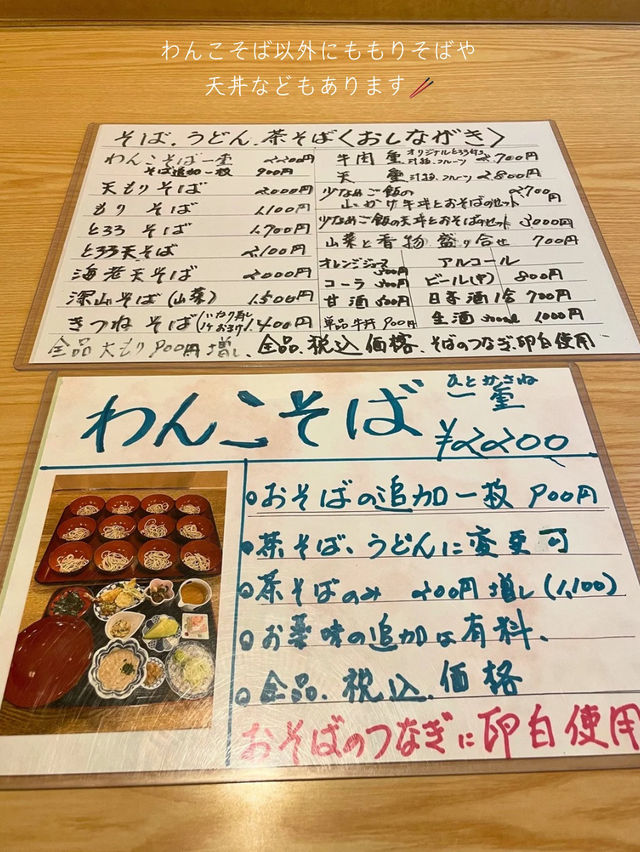 わんこそば以外にももりそばや
天丼などもあります
そば、うどん、茶そば〈おしながき〉
わんこそば一重 2200円
そば追加一枚 900円
天もりそば 2000円
もり そば 1,100円
とろろ そば 1,700円
とろろ天そば 2,100円
海老天そば 2000円
深山そば(山菜) 1,500円
きつね そば 1,400円
全品 大もり900円増し、全品、税込価格、そばのつなぎ、卵白使用
牛肉重 2,700円
天 重 2,800円
少なめご飯の 2700円
山かけ牛丼とおそばのセット
少なめご飯の天丼とおそばのセット 3000円
山菜と香物盛り合せ 700円
オレンジジュース 500円
コーラ 500円
甘酒 500円
単品牛丼 900円
アルコール
ビール(中) 800円
日本酒1合 700円
生酒 1000円
わんこそば
ひとかさね
一重
¥2200
おそばの追加一枚 900円
茶そば、うどんに変更可
茶そばのみ 200円増し(1,100)
お薬味の追加は有料、
全品、税込、価格
おそばのつなぎに卵白使用